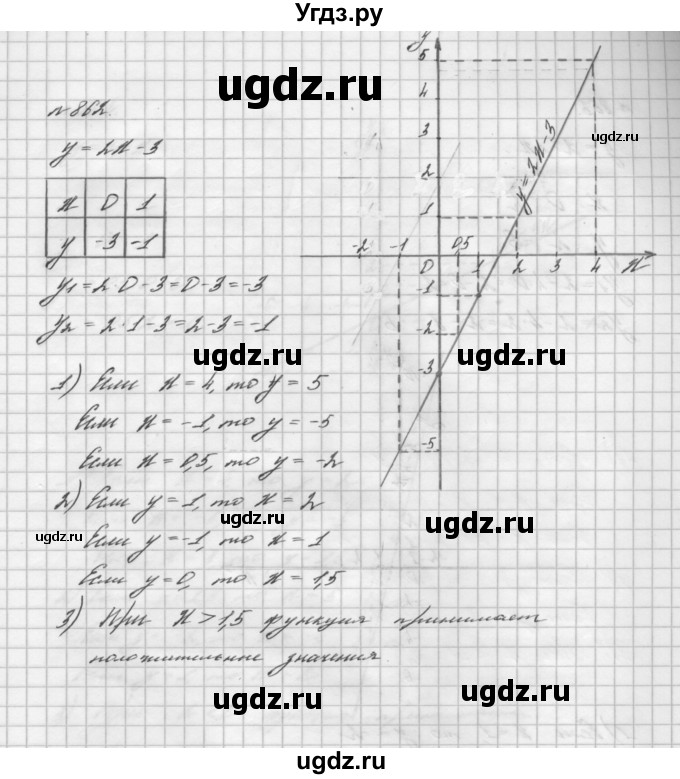 Угдз.ру
ugdz.ru
№ 862.
y = 2x - 3
x 0 1
y -3 -1
y1 = 2·0 - 3 = 0 - 3 = -3
y2 = 2·1 - 3 = 2 - 3 = -1
ugdz.ru
1) Если x = 4, то y = 5
Если x = -1, то y = -5
Если x = 0,5, то y = -2
2) Если y = 1, то x = 2
ugdz.ru
ugdz.ru
Если y = -1, то x = 1
Если y = 0, то x = 1,5
3) При x > 1,5 функция принимает
положительные значения
ugdz.ru
y
5
4
3
2
1
ugdz.ru
y = 2x - 3
-2 -1 0 0,5 1 2 3 4 x
-1
-2
-3
-5
ugdz.ru
ugdz.ru
ugdz.ru
ugdz.ru